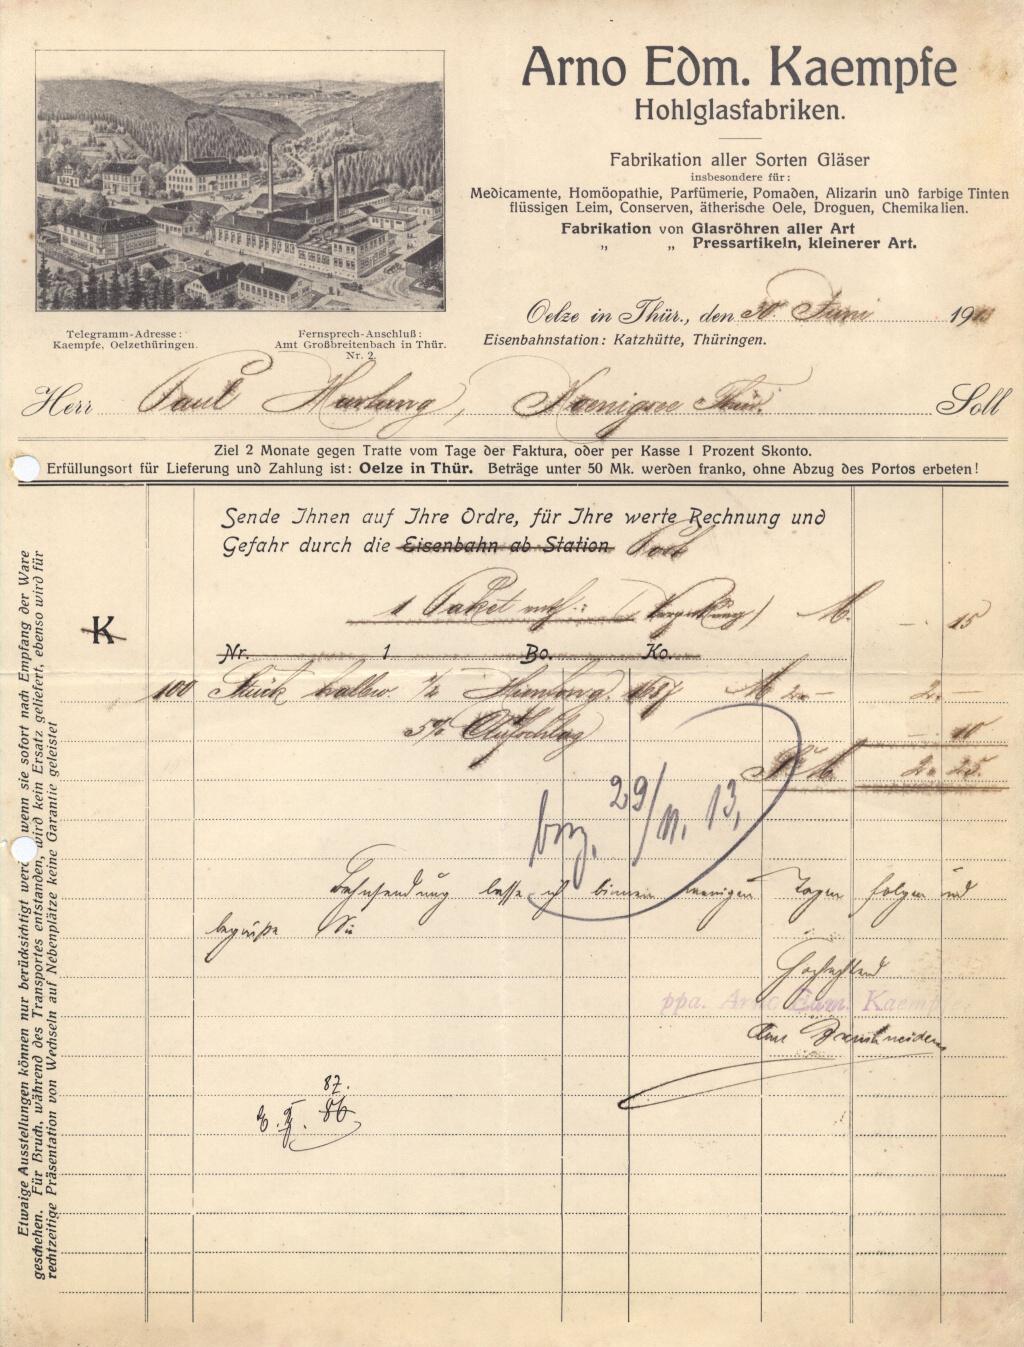 Arno Edm. Kaempfe
Hohlglasfabriken.
Fabrikation aller Sorten Gläser
insbesondere für:
Medicamente, Homöopathie, Parfümerie, Pomaden, Alizarin und farbige Tinten
flüssigen Leim, Conserven, ätherische Oele, Droguen, Chemikalien.
Fabrikation von Glasröhren aller Art
„ „ Pressartikeln, kleinerer Art.
Telegramm-Adresse:
Kaempfe, Oelzethüringen.
Fernsprech-Anschluß:
Amt Großbreitenbach in Thür.
Nr. 2.
Oelze in Thür., den 30. Juni 1913
Eisenbahnstation: Katzhütte, Thüringen.
Herr Paul Hartung, Koenigsee Thür. Soll
Ziel 2 Monate gegen Tratte vom Tage der Faktura, oder per Kasse 1 Prozent Skonto.
Erfüllungsort für Lieferung und Zahlung ist: Oelze in Thür. Beträge unter 50 Mk. werden franko, ohne Abzug des Portos erbeten!
Sende Ihnen auf Ihre Ordre, für Ihre werte Rechnung und
Gefahr durch die Eisenbahn ab Station Post
1 Paket (Verpackung) M. -. 15
K
Nr. 1 Bo. Ko.
100 Stück 1687 M 2.- 2. -
5% Aufschlag -. 10
M. 2. 25.
bez. 29/11. 13.
Bahnsendung lasse ich binnen wenigen Tagen folgen und
begrüße Sie
Hochachtend
ppa. Arno Edm. Kaempfe
87.
86
Etwaige Ausstellungen können nur berücksichtigt werden, wenn sie sofort nach Empfang der Ware
geschehen. Für Bruch, während des Transportes entstanden, wird kein Ersatz geliefert, ebenso wird für
rechtzeitige Präsentation von Wechseln auf Nebenplätze keine Garantie geleistet